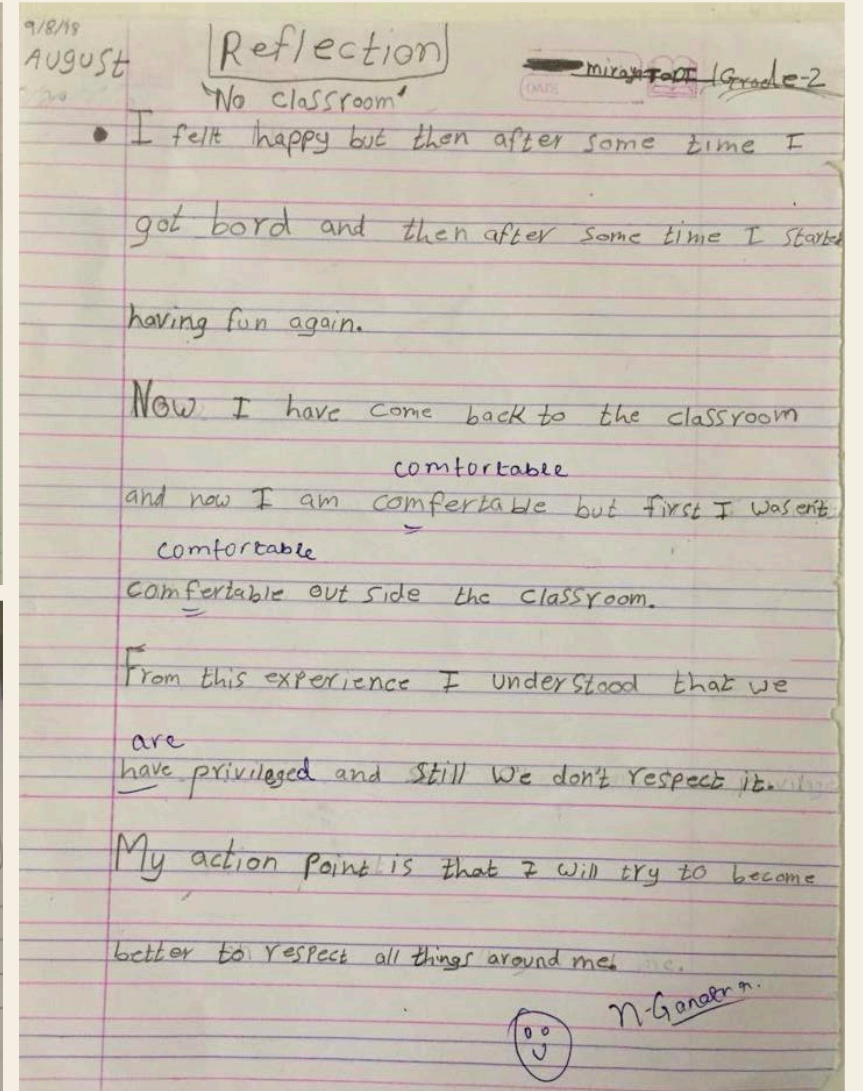 9/8/18
AUGUST
Reflection
Grade-2
'No classroom'
• I fellt happy but then after some time I
got bord and then after some time I started
having fun again.
Now I have come back to the classroom
comfortable
and now I am comfertable but first I wasen't
comfortable
comfertable out side the classroom.
From this experience I understood that we
are
have privileged and still we don't respect it.
My action point is that I will try to become
better to respect all things around me.